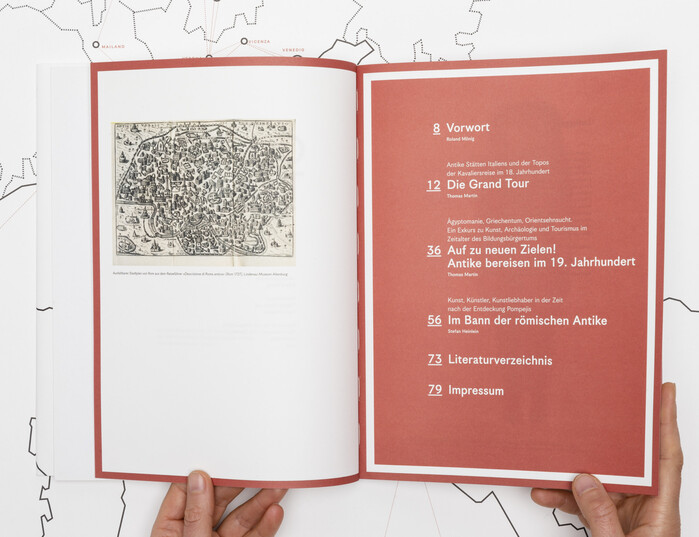 MAILAND
VICENZA
VENEDIG
8 Vorwort
Antike Stätten Italiens und der Topos
der Kavaliersreise im 18. Jahrhundert
12 Die Grand Tour
Thomas Martin
Ägyptomanie, Griechentum, Orientsehnsucht.
Ein Exkurs zu Kunst, Archäologie und Tourismus im
Zeitalter des Bildungsbürgertums
36 Auf zu neuen Zielen!
Antike bereisen im 19. Jahrhundert
Thomas Martin
Kunst, Künstler, Kunstliebhaber in der Zeit
nach der Entdeckung Pompejis
56 Im Bann der römischen Antike
73 Literaturverzeichnis
79 Impressum